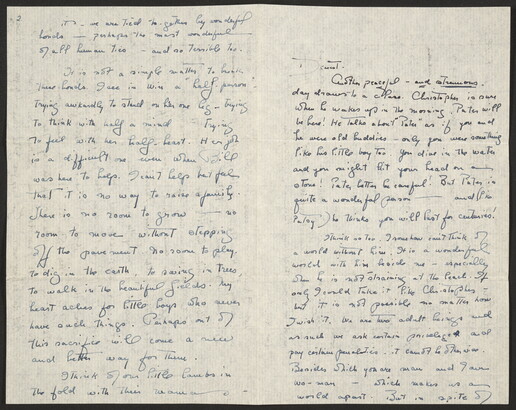 2
it - we are tied together by wonderful
bonds - perhaps the most wonderful
of all human ties - and so terrible too.
It is not a simple matter to break
these bonds. I see in Wira a half-person
trying awkwardly to stand on her one leg - trying
to think with half a mind trying
to feel with her half-heart. Her job
is a difficult one even when Bill
was here to help. I can't help but feel
that it is no way to raise a family.
There is no room to grow - no
room to move without stepping
off the pavement. no room to play,
to dig in the earth to swing in trees,
to walk in the beautiful fields. My
heart aches for little boys who never
have such things. Perhaps out of
this sacrifice will come a nice
and better way for them.
I think of our little lambs in
the fold with their mama
Another peaceful - and strenuous -
day draws to a close. Christopher is sure
when he wakes up in the morning, Patsy will
be here! He talks about Patsy as if you and
he were old buddies - only you were something
like his little boy too. You dive in the water
and you might hit your head on a
stone! Patsy better be careful. But Patsy is
quite a wonderful person - and (like
Patsy) he thinks you will last for centuries!
I think so too. I somehow can't think of
a world without him. It is a wonderful
world with him beside me - especially
when he is not straining at the leash. If
only I could take it like Christopher -
but it is not possible no matter how
I wish it. We are two adult beings and
as such we ask certain privileges and
pay certain penalties. it cannot be otherwise.
Besides which you are man and I am
wo-man - which makes us a
world apart. But in spite of